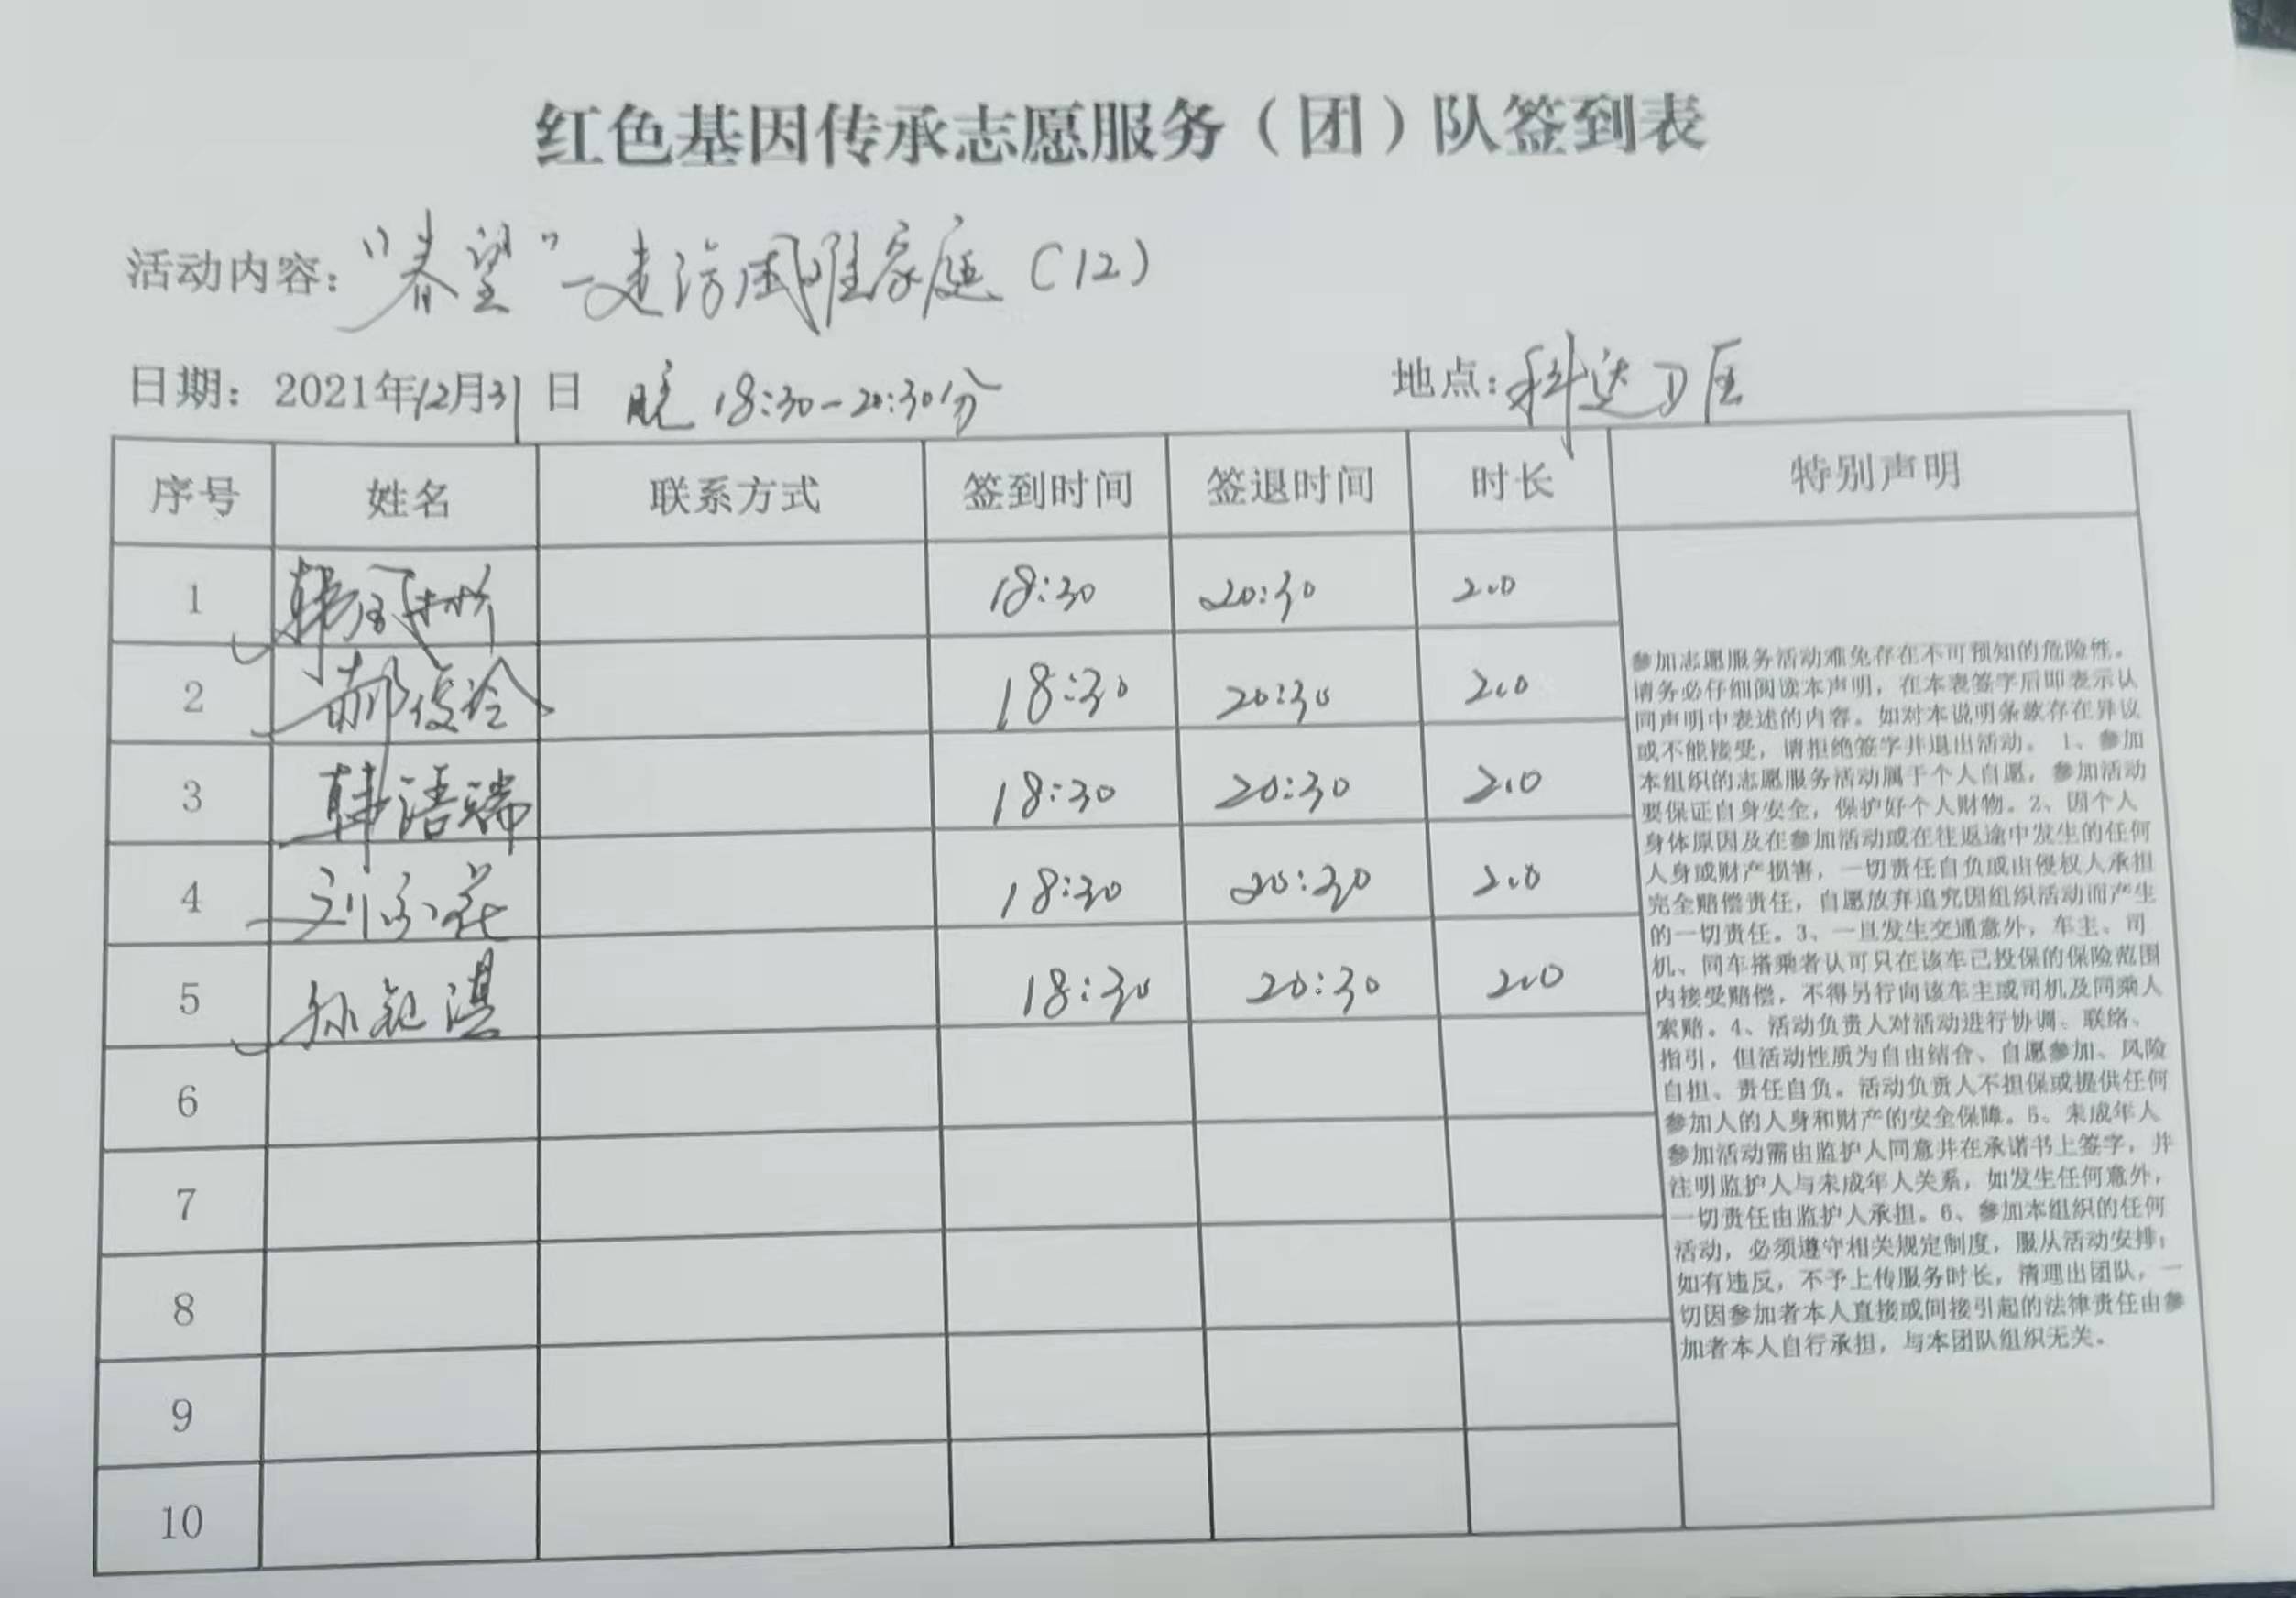 红色基因传承志愿服务（团）队签到表
活动内容：“春望”—走访困难家庭（12）
日期：2021年12月31日 晚18:30-20:30分 地点：科达D区
序号 姓名 联系方式 签到时间 签退时间 时长 特别声明
1 韩 18:30 20:30 2.0
2 郝俊玲 18:30 20:30 2.0
3 韩语瑞 18:30 20:30 2.0
4 刘 花 18:30 20:30 2.0
5 孙 淇 18:30 20:30 2.0
6
7
8
9
10
参加志愿服务活动难免存在不可预知的危险性。
请务必仔细阅读本声明，在本表签字后即表示认
同声明中表述的内容。如对本说明条款存在异议
或不能接受，请拒绝签字并退出活动。 1、参加
本组织的志愿服务活动属于个人自愿，参加活动
要保证自身安全，保护好个人财物。2、因个人
身体原因及在参加活动或在往返途中发生的任何
人身或财产损害，一切责任自负或由侵权人承担
完全赔偿责任，自愿放弃追究因组织活动而产生
的一切责任。3、一旦发生交通意外，车主、司
机、同车搭乘者认可只在该车已投保的保险范围
内接受赔偿，不得另行向该车主或司机及同乘人
索赔。4、活动负责人对活动进行协调、联络、
指引，但活动性质为自由结合、自愿参加、风险
自担、责任自负。活动负责人不担保或提供任何
参加人的人身和财产的安全保障。5、未成年人
参加活动需由监护人同意并在承诺书上签字，并
注明监护人与未成年人关系，如发生任何意外，
一切责任由监护人承担。6、参加本组织的任何
活动，必须遵守相关规定制度，服从活动安排；
如有违反，不予上传服务时长，清理出团队，一
切因参加者本人直接或间接引起的法律责任由参
加者本人自行承担，与本团队组织无关。